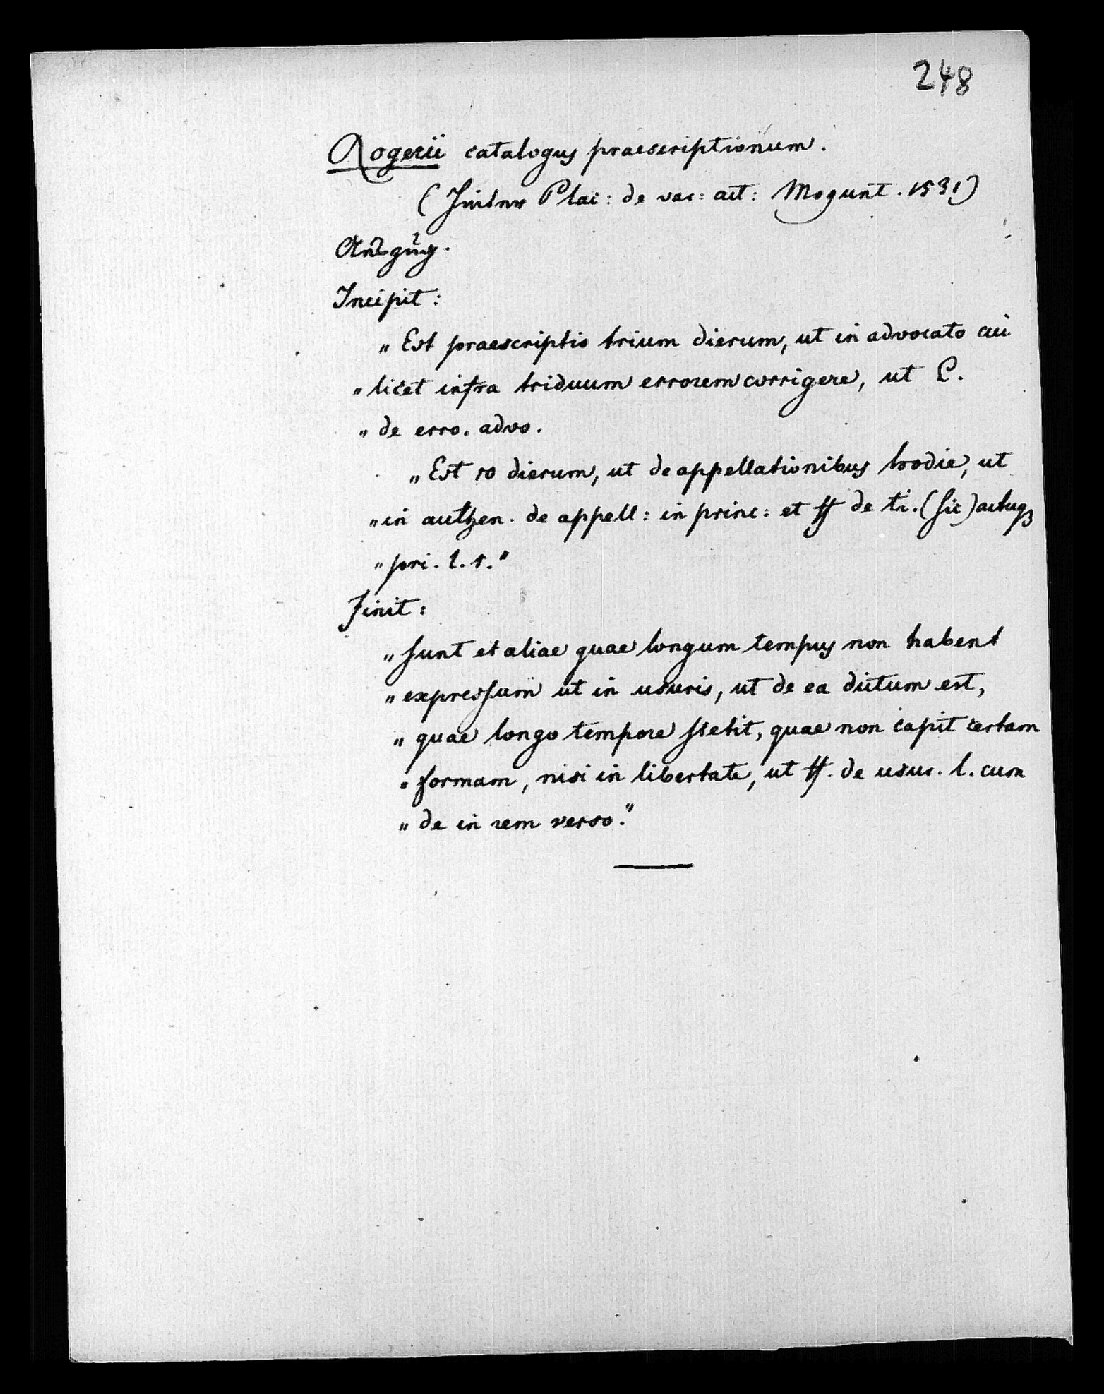 248
Rogerii catalogus praescriptionum.
(hinter Plac: de var: act: Mogunt. 1531)
Anfang.
Incipit:
„Est praescriptio trium dierum, ut in advocato cui
„licet infra triduum errorem corrigere, ut C.
„de erro. advo.
„Est 10 dierum, ut de appellationibus hodie, ut
„in authen. de appell: in princ: et ff de ti. (sic)
„pri. l. 1."
Finit:
„sunt et aliae quae longum tempus non habent
„expressum ut in usuris, ut de ea dictum est,
„quae longo tempore stetit, quae non capit certam
„formam, nisi in libertate, ut ff. de usur. l. cum
„de in rem verso."